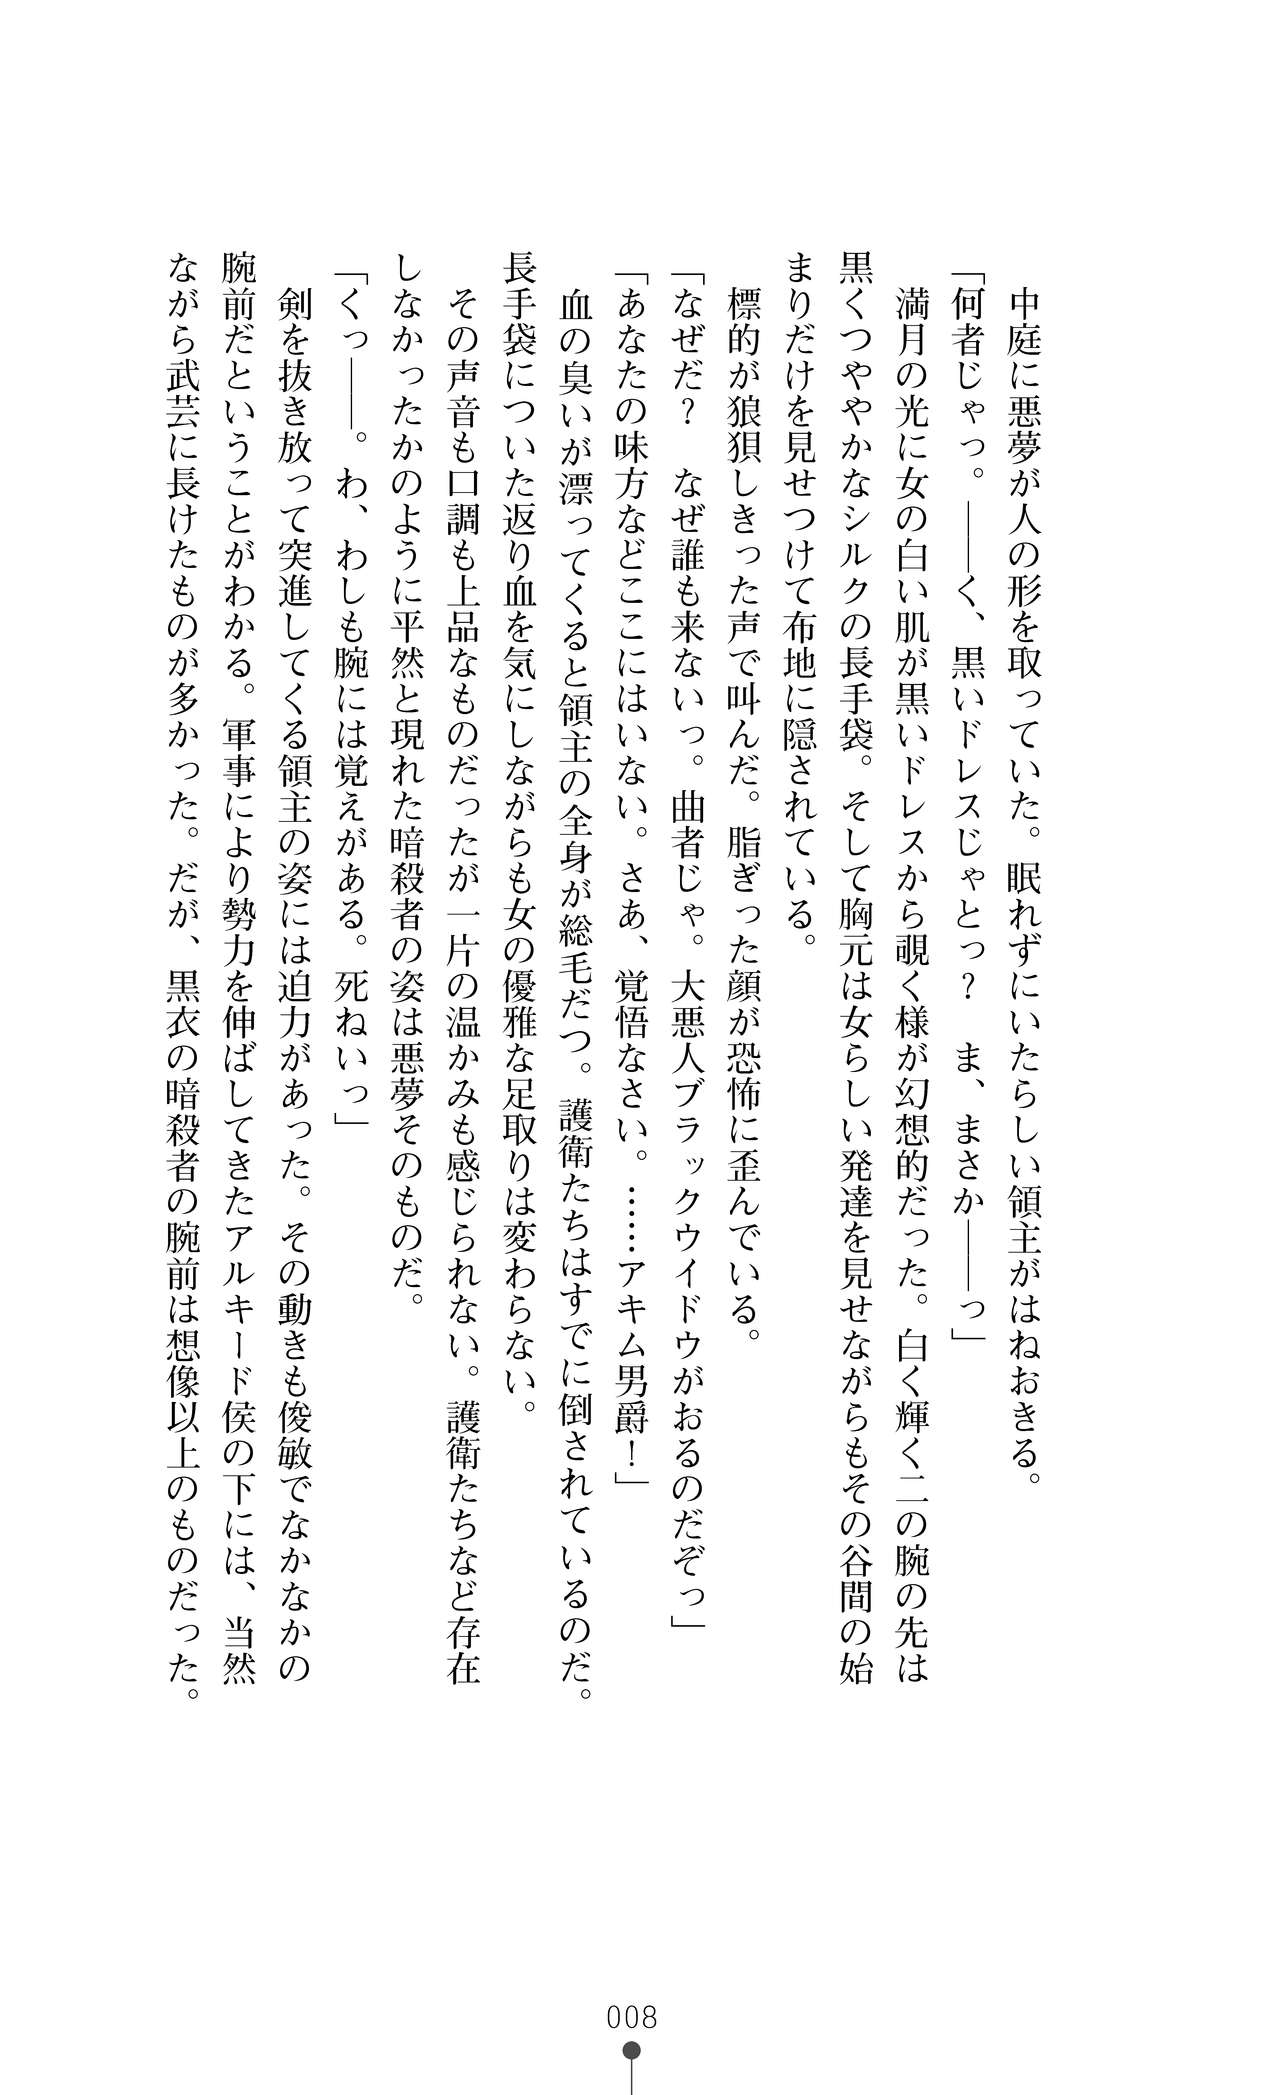 中庭に悪夢が人の形を取っていた。眠れずにいたらしい領主がはねおきる。
「何者じゃっ。――く、黒いドレスじゃとっ？　ま、まさか――っ」
　満月の光に女の白い肌が黒いドレスから覗く様が幻想的だった。白く輝く二の腕の先は
黒くつややかなシルクの長手袋。そして胸元は女らしい発達を見せながらもその谷間の始
まりだけを見せつけて布地に隠されている。
　標的が狼狽しきった声で叫んだ。脂ぎった顔が恐怖に歪んでいる。
「なぜだ？　なぜ誰も来ないっ。曲者じゃ。大悪人ブラックウイドウがおるのだぞっ」
「あなたの味方などここにはいない。さあ、覚悟なさい。……アキム男爵！」
　血の臭いが漂ってくると領主の全身が総毛だつ。護衛たちはすでに倒されているのだ。
長手袋についた返り血を気にしながらも女の優雅な足取りは変わらない。
　その声音も口調も上品なものだったが一片の温かみも感じられない。護衛たちなど存在
しなかったかのように平然と現れた暗殺者の姿は悪夢そのものだ。
「くっ――。わ、わしも腕には覚えがある。死ねいっ」
　剣を抜き放って突進してくる領主の姿には迫力があった。その動きも俊敏でなかなかの
腕前だということがわかる。軍事により勢力を伸ばしてきたアルキード侯の下には、当然
ながら武芸に長けたものが多かった。だが、黒衣の暗殺者の腕前は想像以上のものだった。
008